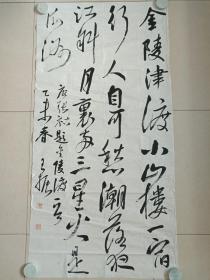 金陵津渡小山樓一宿
行人自可愁潮落夜
江斜月裏两三星火是
瓜洲
唐張祜題金陵渡
乙未春